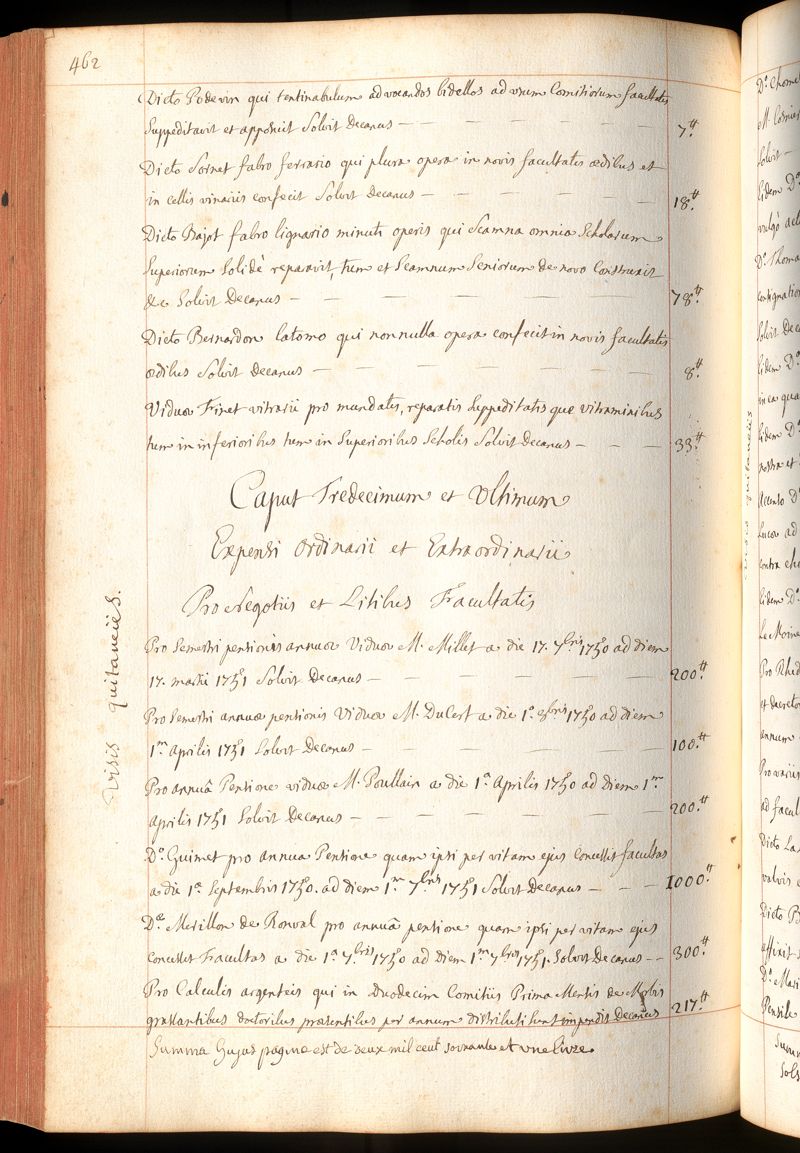 462
Dicto Podevin qui tentinabulum ad vocandos bidellos ad usum Comitiorum facultatis
Suppeditavit et apposuit Solvit Decanus — 7.tt
Dicto Sornet fabro ferrario qui plura opera in novis facultatis ædibus et
in cellis vinariis confecit Solvit Decanus — 18.tt
Dicto Bajot fabro lignario minuti operis qui Scamna omnia Scholarum
Superiorum Solidè reparavit, tum et Scamnum Seniorum de novo Construxit
&c Solvit Decanus — 78.tt
Dicto Bernardon latomo qui nonnulla opera confecit in novis facultatis
ædibus Solvit Decanus — 8.tt
Viduæ Finet vitrarii pro mundatis, reparatis Suppeditatisque vitraminibus
tum in inferioribus tum in Superioribus Scholis Solvit Decanus — 33.tt
Caput Tredecimum et Ultimum
Expensi Ordinarii et Extraordinarii
Pro Negotiis et Litibus Facultatis
Visis quitanciis.
Pro Semestri pensionis annuæ Viduæ M. Millet a die 17. 7bris 1750 ad diem
17. martii 1751 Solvit Decanus — 200.tt
Pro Semestri annuæ pensionis Viduæ M. DuCerf a die 1a 8bris 1750 ad diem
1m aprilis 1751 Solvit Decanus — 100.tt
Pro annuâ Pensione viduæ M. Poullain a die 1a Aprilis 1750 ad Diem 1m
Aprilis 1751 Solvit Decanus — 200.tt
Do. Guimet pro annua Pensione quam ipsi per vitam ejus Concessit facultas
a die 1a Septembris 1750. ad diem 1m 7bris 1751 Solvit Decanus — 1000.tt
Dæ Merillon de Ronval pro annuâ pensione quam ipsi per vitam ejus
Concessit Facultas a die 1a 7bris 1750 ad Diem 1m 7bris 1751. Solvit Decanus — 300.tt
Pro Calculis argenteis qui in Duodecim Comitiis Prima Mensis de Morbis
grassantibus doctoribus præsentibus per annum distributi sunt impendit Decanus 217.tt
Summa hujus paginæ est de deux mil cent soixante et une livre